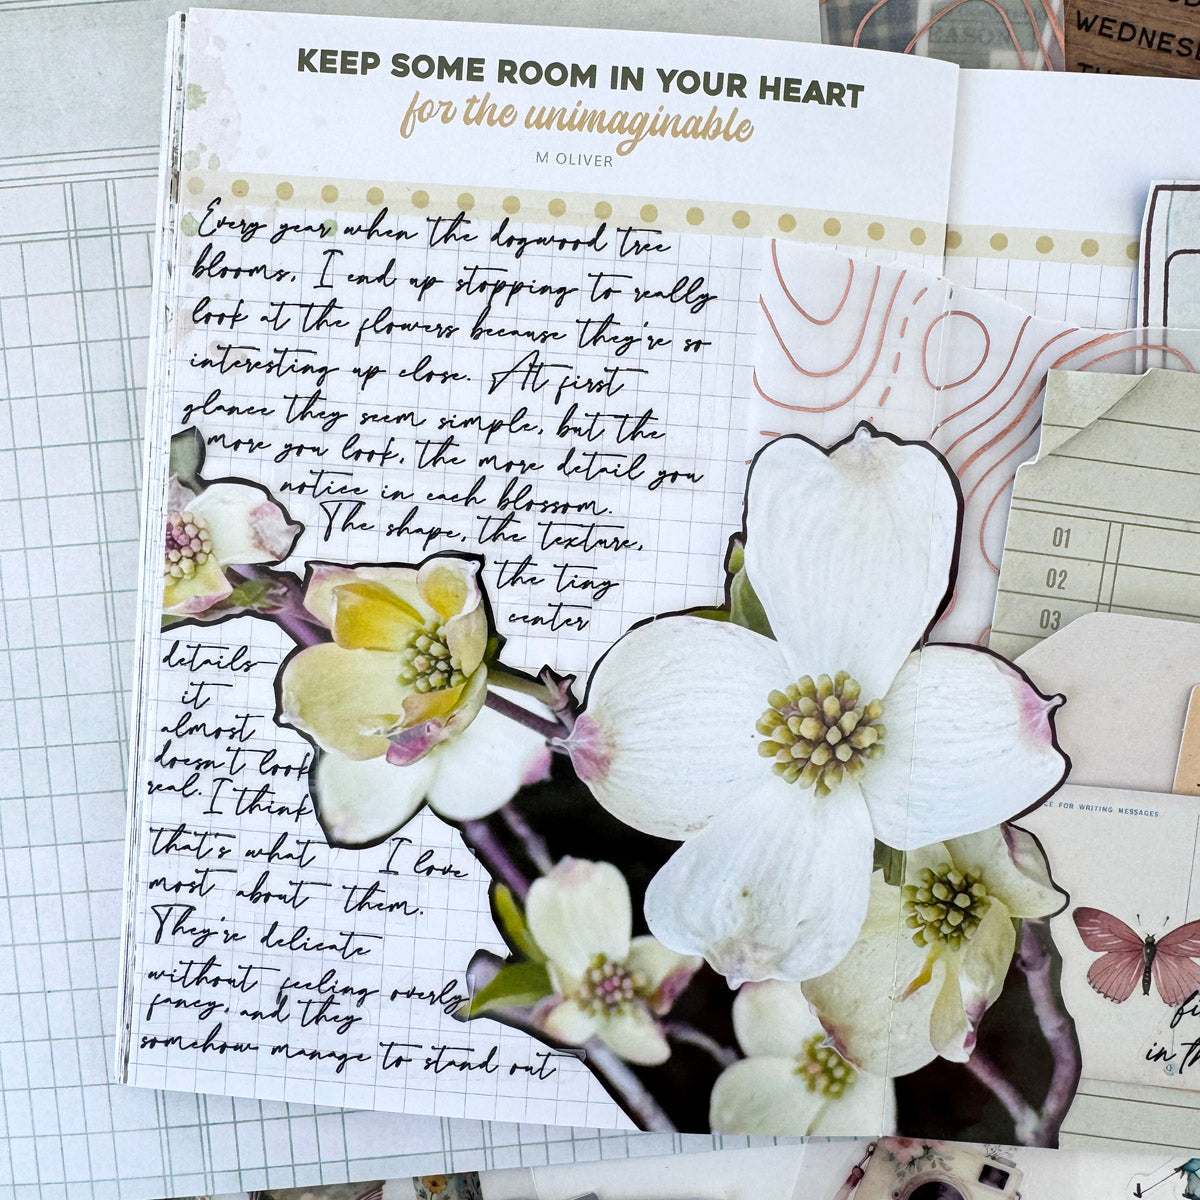 KEEP SOME ROOM IN YOUR HEART
for the unimaginable
M OLIVER
Every year when the dogwood tree
blooms, I end up stopping to really
look at the flowers because they're so
interesting up close. At first
glance they seem simple, but the
more you look, the more detail you
notice in each blossom.
The shape, the texture,
the tiny
center
details—
it
almost
doesn't look
real. I think
that's what I love
most about them.
They're delicate
without feeling overly
fancy, and they
somehow manage to stand out
WEDNES
01
02
03
CE FOR WRITING MESSAGES
fi
in th